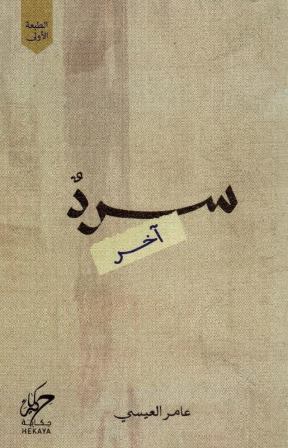 الطبعة
الأولى
سردٌ
آخر
عامر العيسي
حكاية
HEKAYA